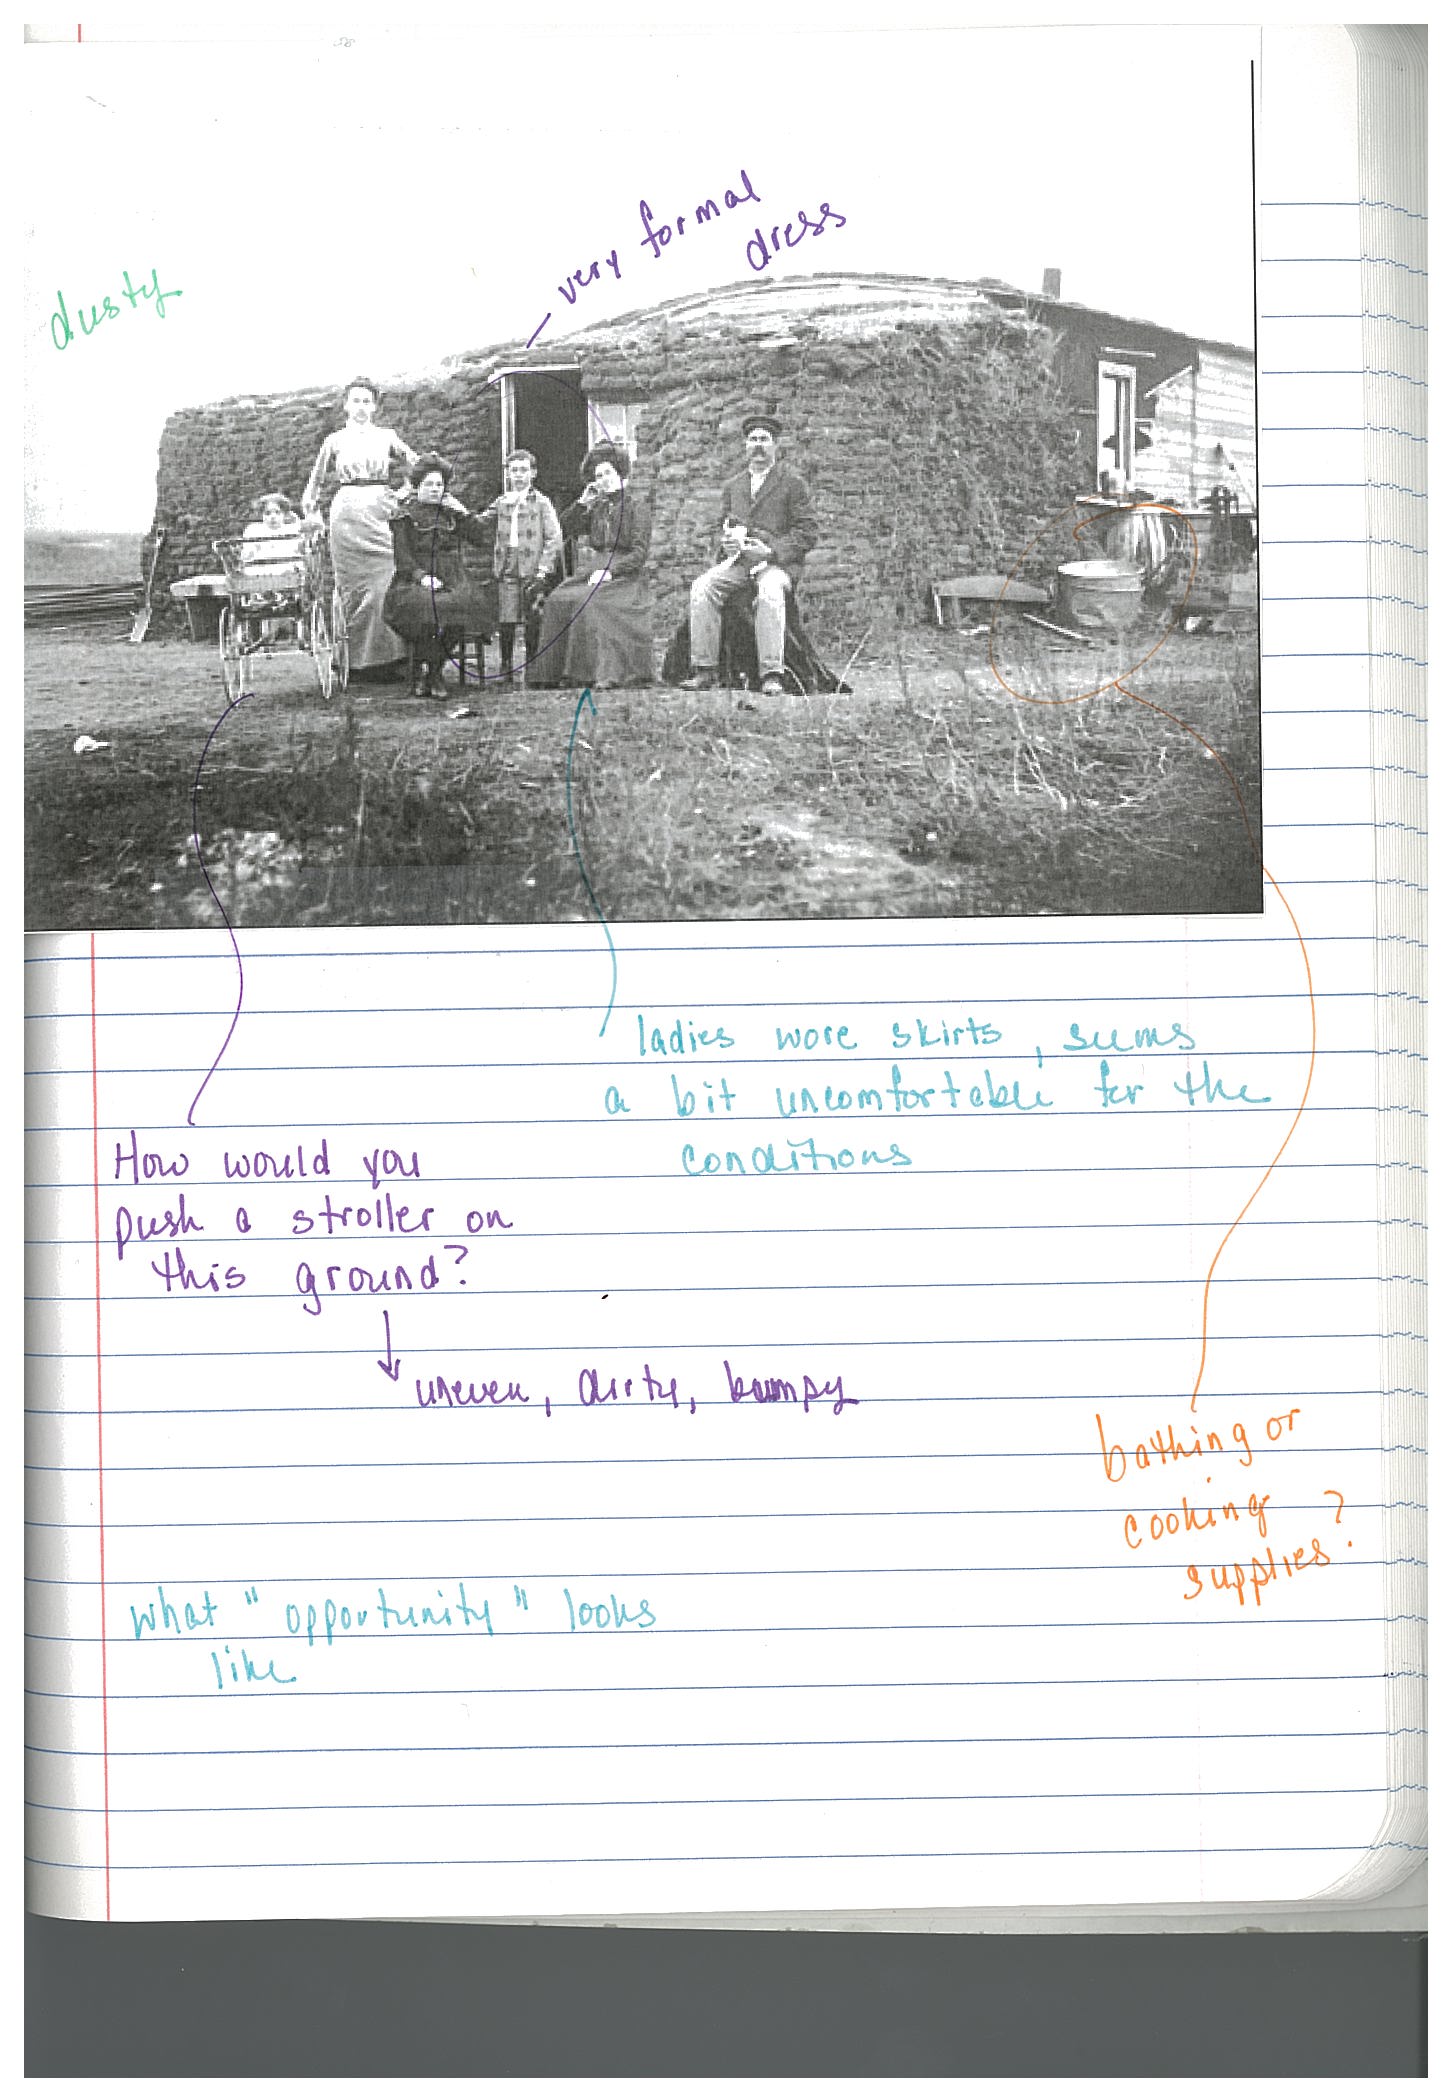 very formal
dress
dusty
ladies wore skirts, seems
a bit uncomfortable for the
conditions
How would you
push a stroller on
this ground?
uneven, dirty, bumpy
bathing or
cooking
supplies?
what "opportunity" looks
like